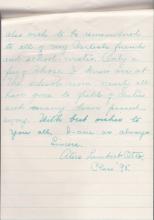 also wish to be remembered
to all of my Carlisle friends
and school mates. Only a
few those I knew are at
the school now nearly all
have gone to fields of duties
and many have passed
away. With best wishes to
you all, I am as always
Sincere.
Alice Lambert
Class '95